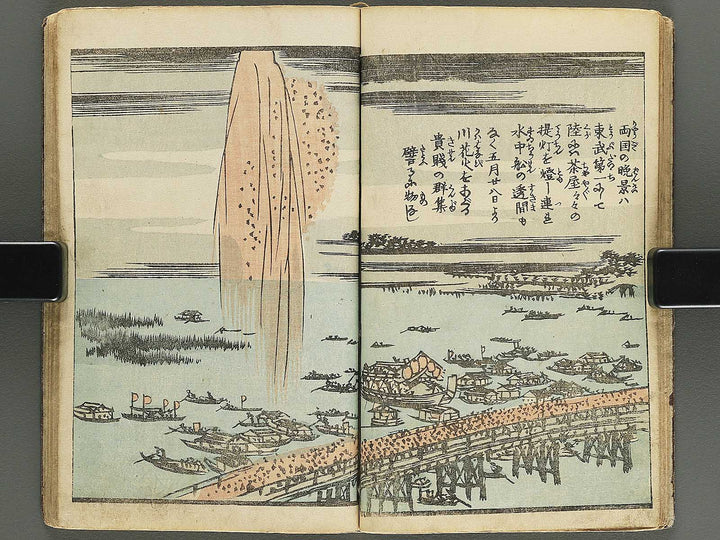 両国の晩景ハ
東武第一にして
陸には茶屋々々の
提灯を燈し連ね
水中船の透間も
なく五月廿八日より
川花火をあぐる
貴賤の群集
譬るに物なし